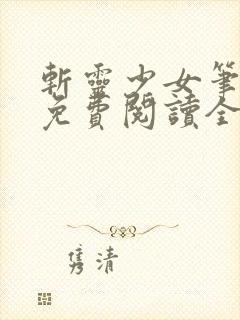 斬靈少女筆
免費閱讀全
隽清